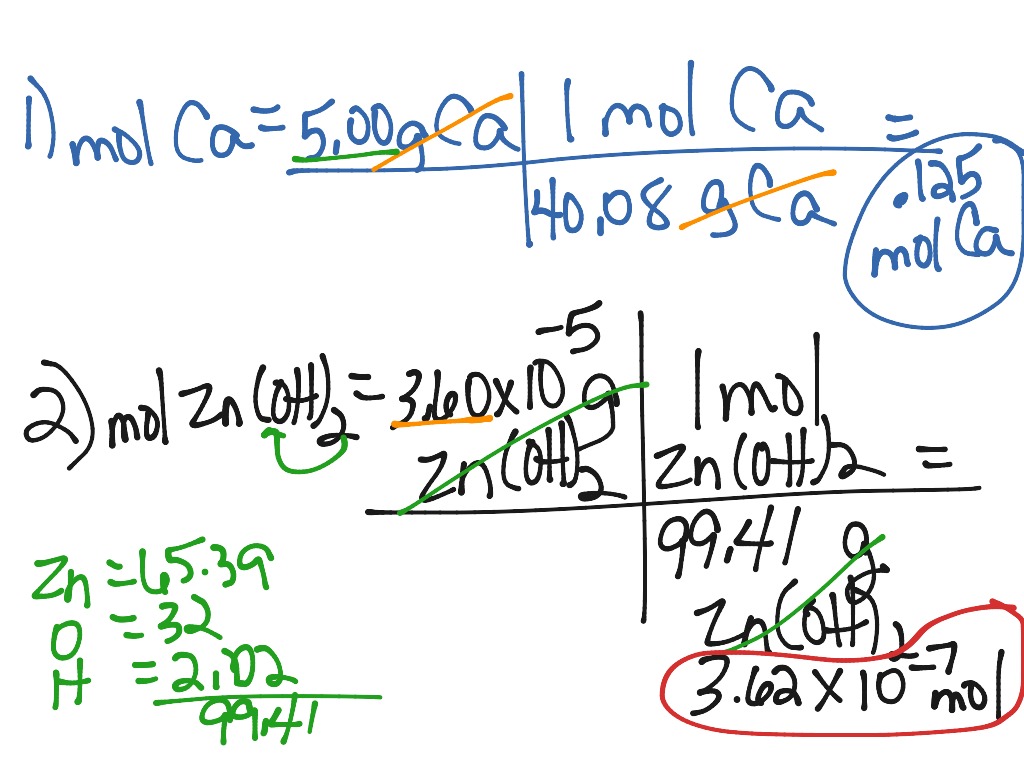 1) mol Ca = 5.00 g Ca | 1 mol Ca =
40.08 g Ca
.125
mol Ca
2) mol Zn(OH)₂ = 3.60 x 10⁻⁵ g | 1 mol
Zn(OH)₂ | Zn(OH)₂ =
99.41 g
Zn(OH)₂
3.62 x 10⁻⁷ mol
Zn = 65.39
O = 32
H = 2.02
99.41